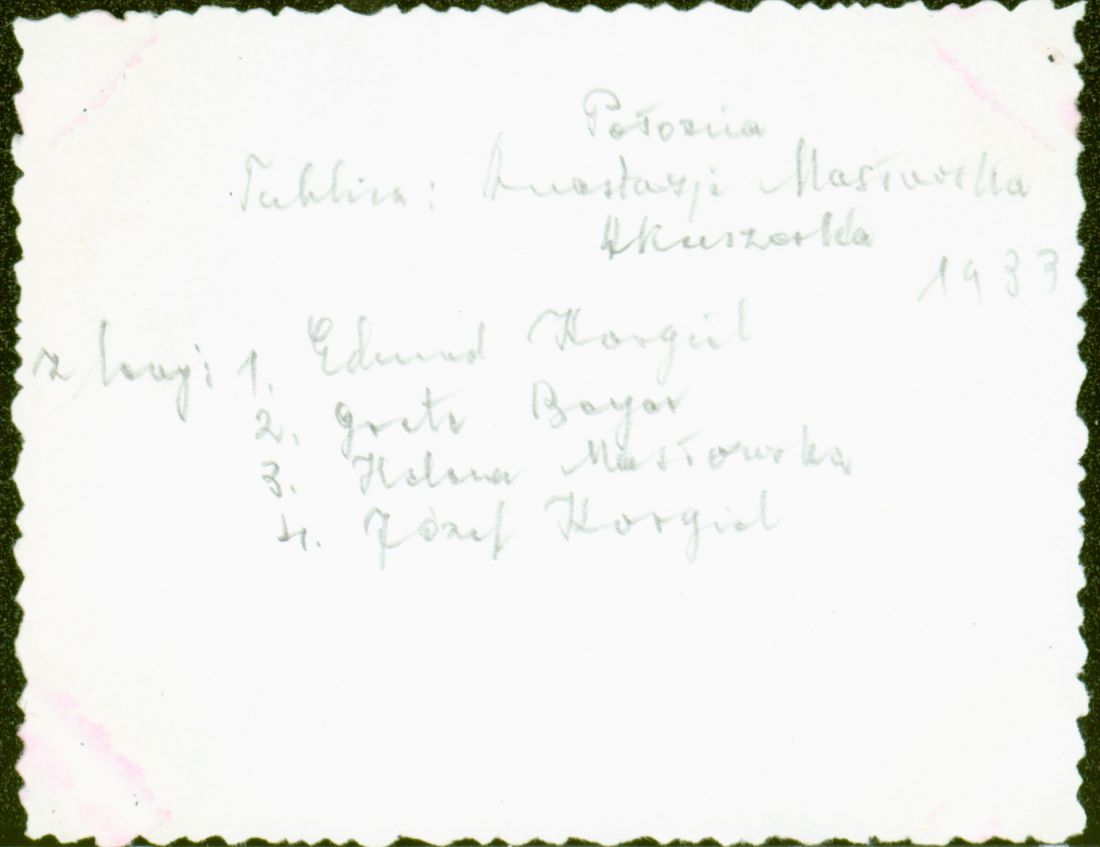 Położna
Tablica: Anastazji Masłowska
Akuszerka
1933
z lewej: 1. Edmund Korgiel
2. Greta Bayer
3. Helena Masłowska
4. Józef Korgiel